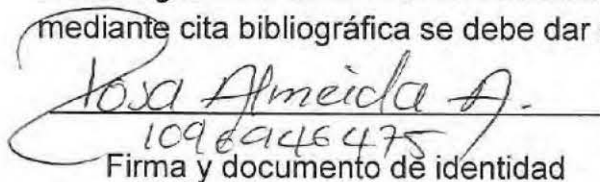 mediante cita bibliográfica se debe dar
Rosa Almeida A.
1096946475
Firma y documento de identidad